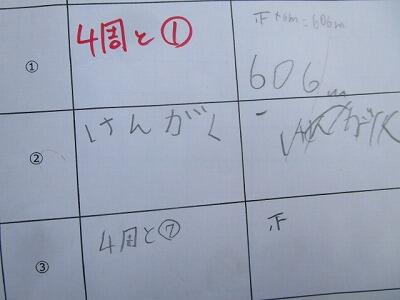 ① 4周と① 正 +6m=606m
606m
② けんがく
③ 4周と⑦ 正